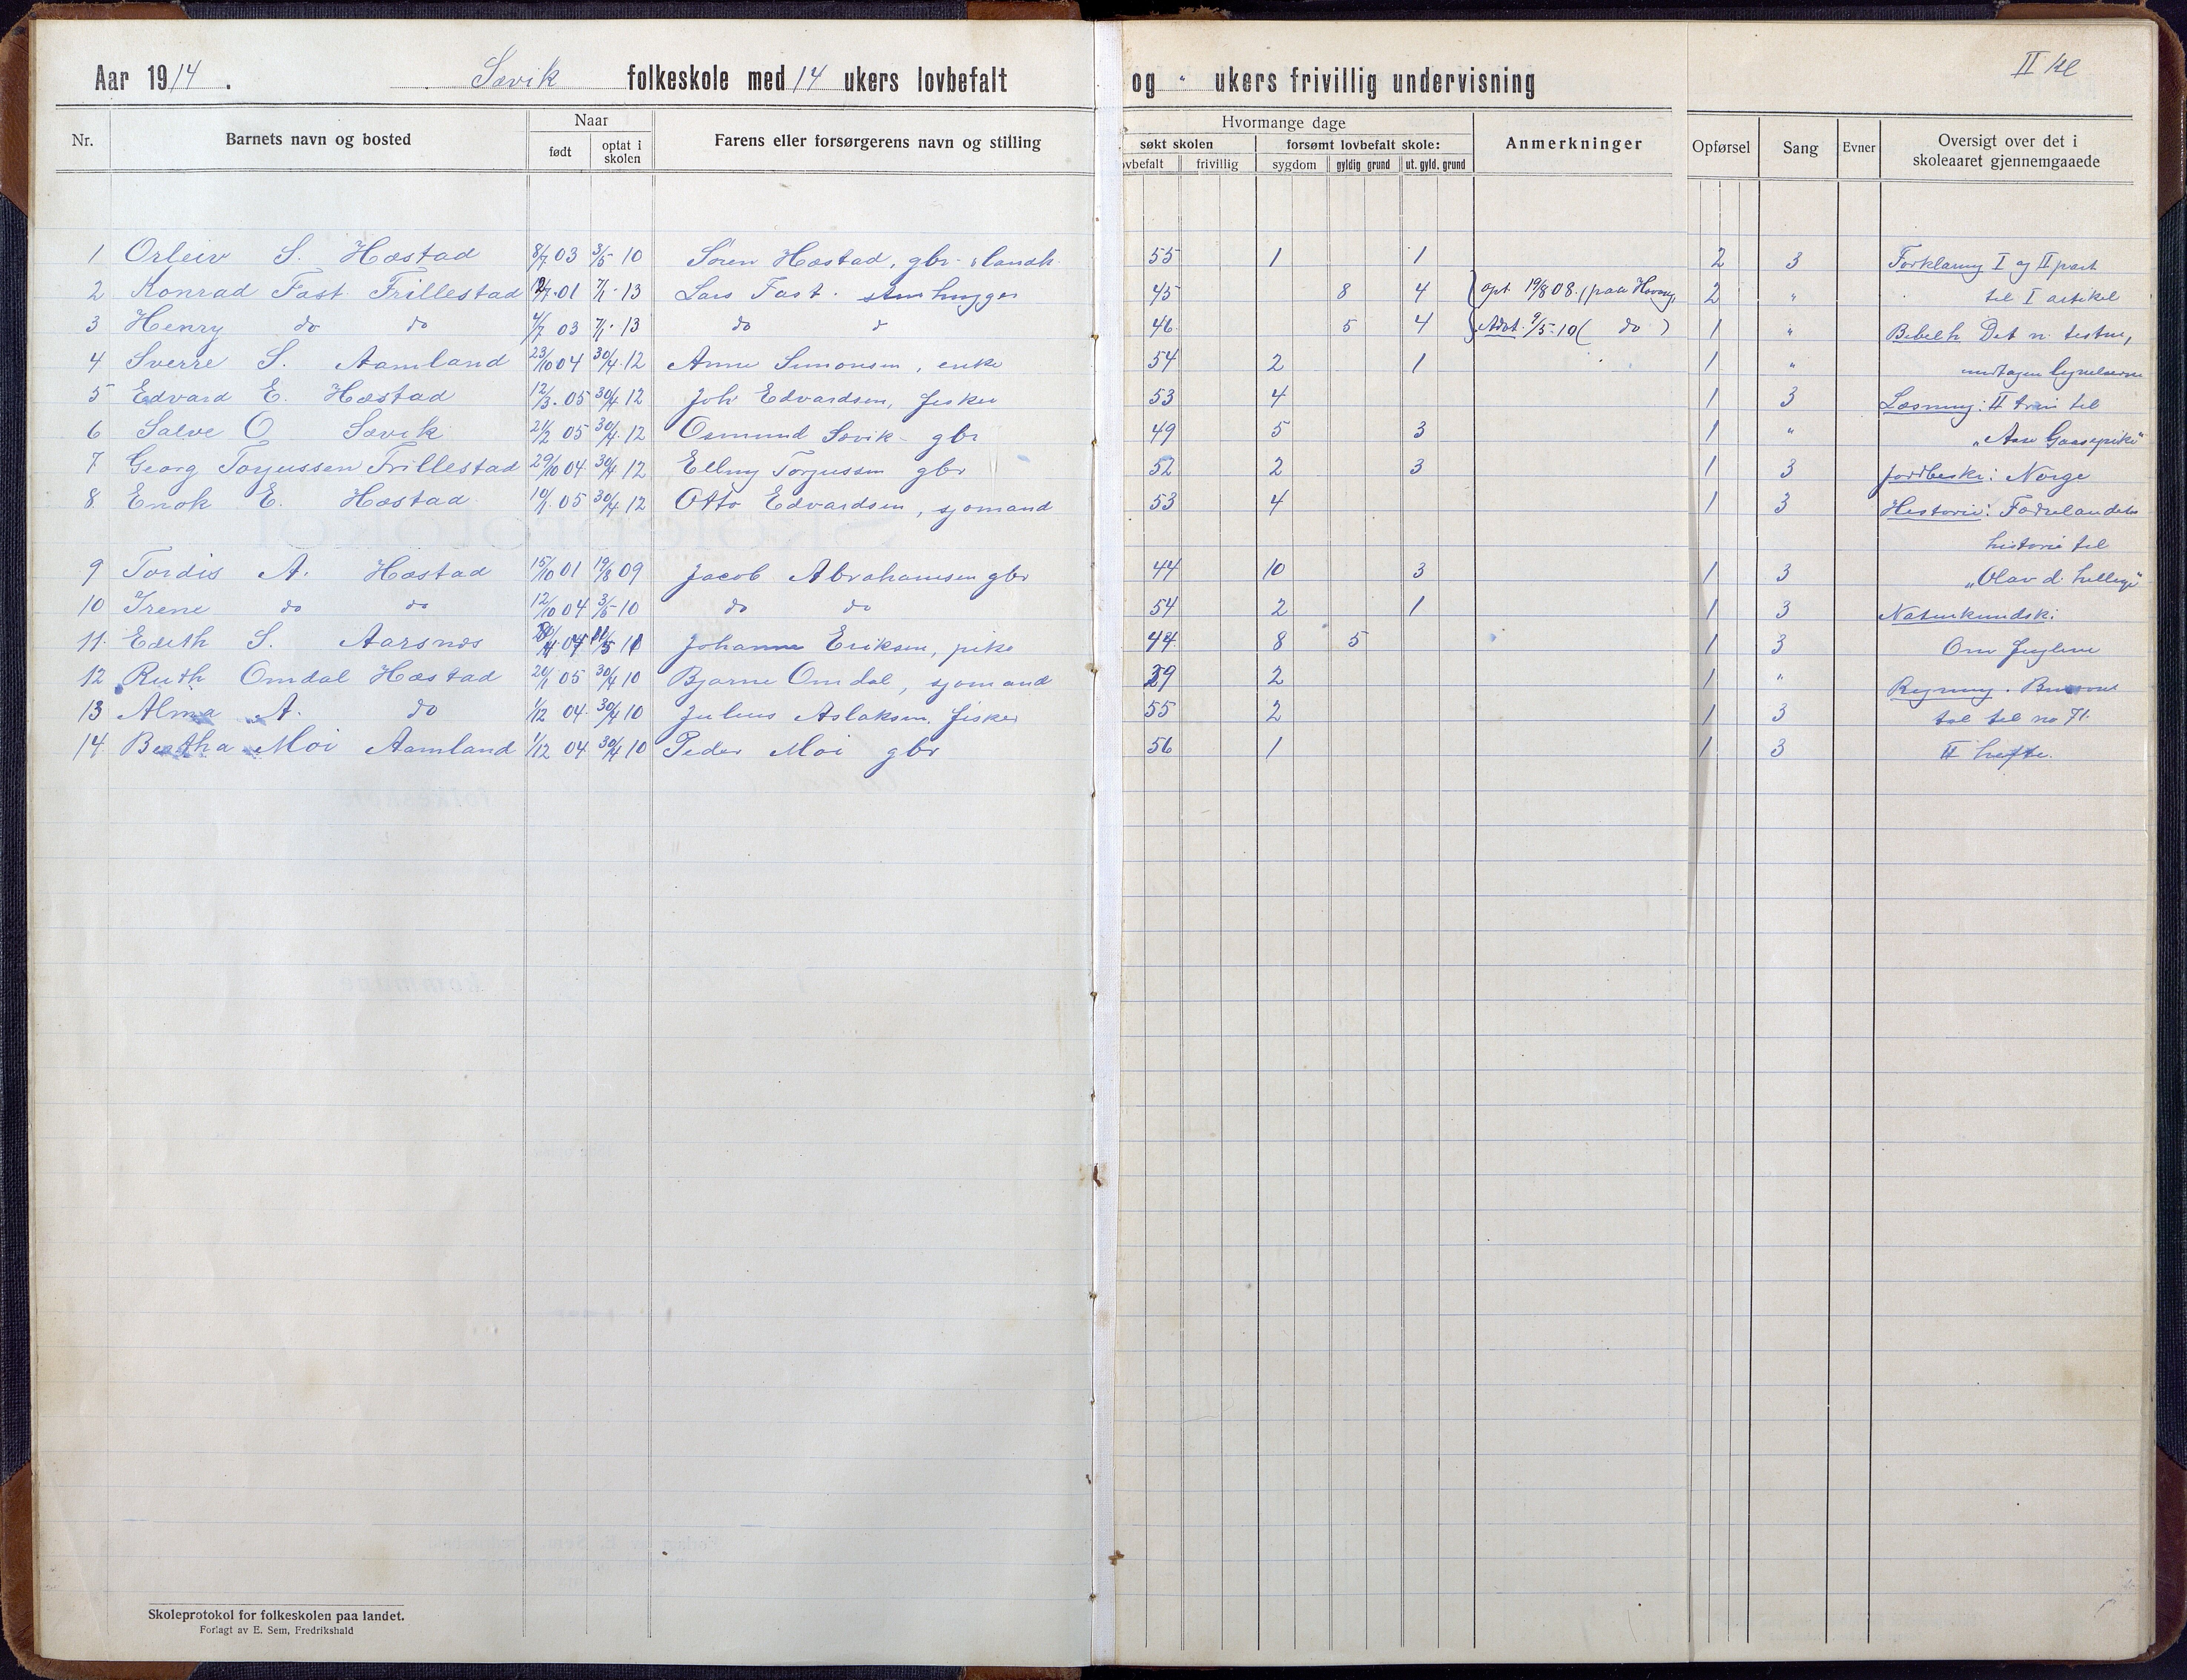 Aar 1914. Søvik folkeskole med 14 ukers lovbefalt og " ukers frivillig undervisning
II kl
Nr. Barnets navn og bosted Naar født optat i skolen Farens eller forsørgerens navn og stilling
Hvormange dage søkt skolen lovbefalt frivillig forsømt lovbefalt skole: sygdom gyldig grund ut. gyld. grund Anmerkninger
Opførsel Sang Evner Oversigt over det i skoleaaret gjennemgaaede
1 Orleiv S. Hæstad 8/7 03 3/5 10 Søren Hæstad, gbr. landh. 55 1 1 2 3 Forklaring I og II part
2 Konrad Fast Frillestad 01 7/1 13 Lars Fast. stenhugger 45 8 4 opt 19/8 08. (paa 2 " til I artikel
3 Henry do do 4/7 03 7/1 13 do 46 5 4 9/5-10 ( do ) 1 " Bibelh. Det n. testm,
4 Sverre S. Aamland 23/10 04 30/4 12 Anne Simonsen, enke 54 2 1 1 "
5 Edvard E. Hæstad 12/3 05 30/4 12 Joh Edvardsen, fisker 53 4 1 3 Læsning: II trin til
6 Salve O Søvik 21/2 05 30/4 12 Osmund Søvik gbr 49 5 3 1 " "Aase Gaasepike"
7 Georg Torjussen Frillestad 29/10 04 30/4 12 Torjussen gbr 52 2 3 1 3 Jordbeskr: Norge
8 Enok E. Hæstad 10/1 05 30/4 12 Otto Edvardsen, sjømand 53 4 1 3 Historie: Fædrelandets
historie til
9 Tordis A. Hæstad 15/10 01 19/8 09 Jacob Abrahamsen gbr 44 10 3 1 3 "Olav d. hellige"
10 Irene do do 12/10 04 3/5 10 do do 54 2 1 1 3 Naturkundsk:
11. Edith S. Aarsnes Johanne Eriksen, pike 44 8 5 1 3 Om fuglene
12 Ruth Omdal Hæstad 20/1 05 30/4 10 Bjarne Omdal, sjømand 39 2 1 " Regning.
13 Alma A. do 1/12 04 30/4 10 Julius Aslaksen. fisker 55 2 1 3 tal til no 71.
14. Bertha Moi Aamland 1/12 04 30/4 10 Peder Moi gbr 56 1 1 3 II hefte.
Skoleprotokol for folkeskolen paa landet.
Forlagt av E. Sem, Fredrikshald